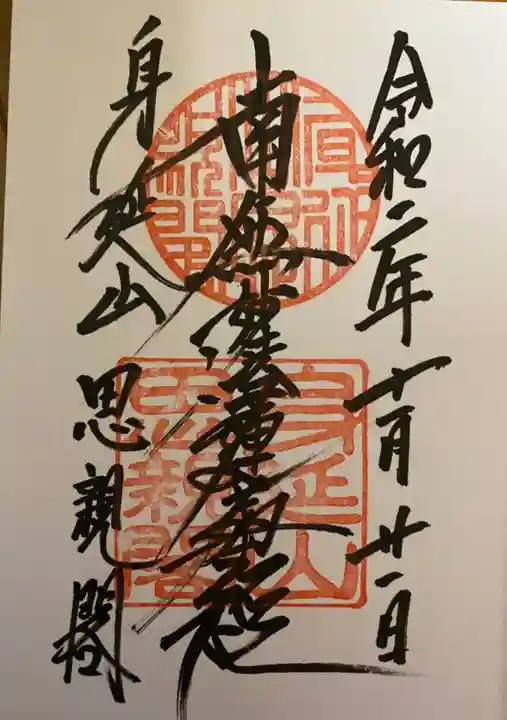 令和二年十月廿一日
南無妙法蓮華経
身延山思親閣
身延山
思親閣